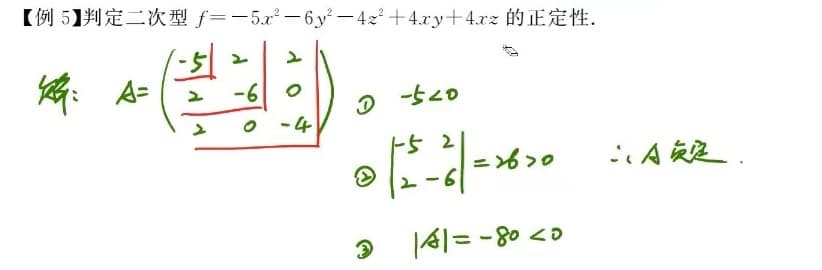 【例 5】判定二次型 f=-5x²-6y²-4z²+4xy+4xz 的正定性.
解: A= (-5 2 2
2 -6 0
2 0 -4)
① -5<0
② |-5 2
2 -6| =26>0 ∴ A 负定.
③ |A|=-80<0